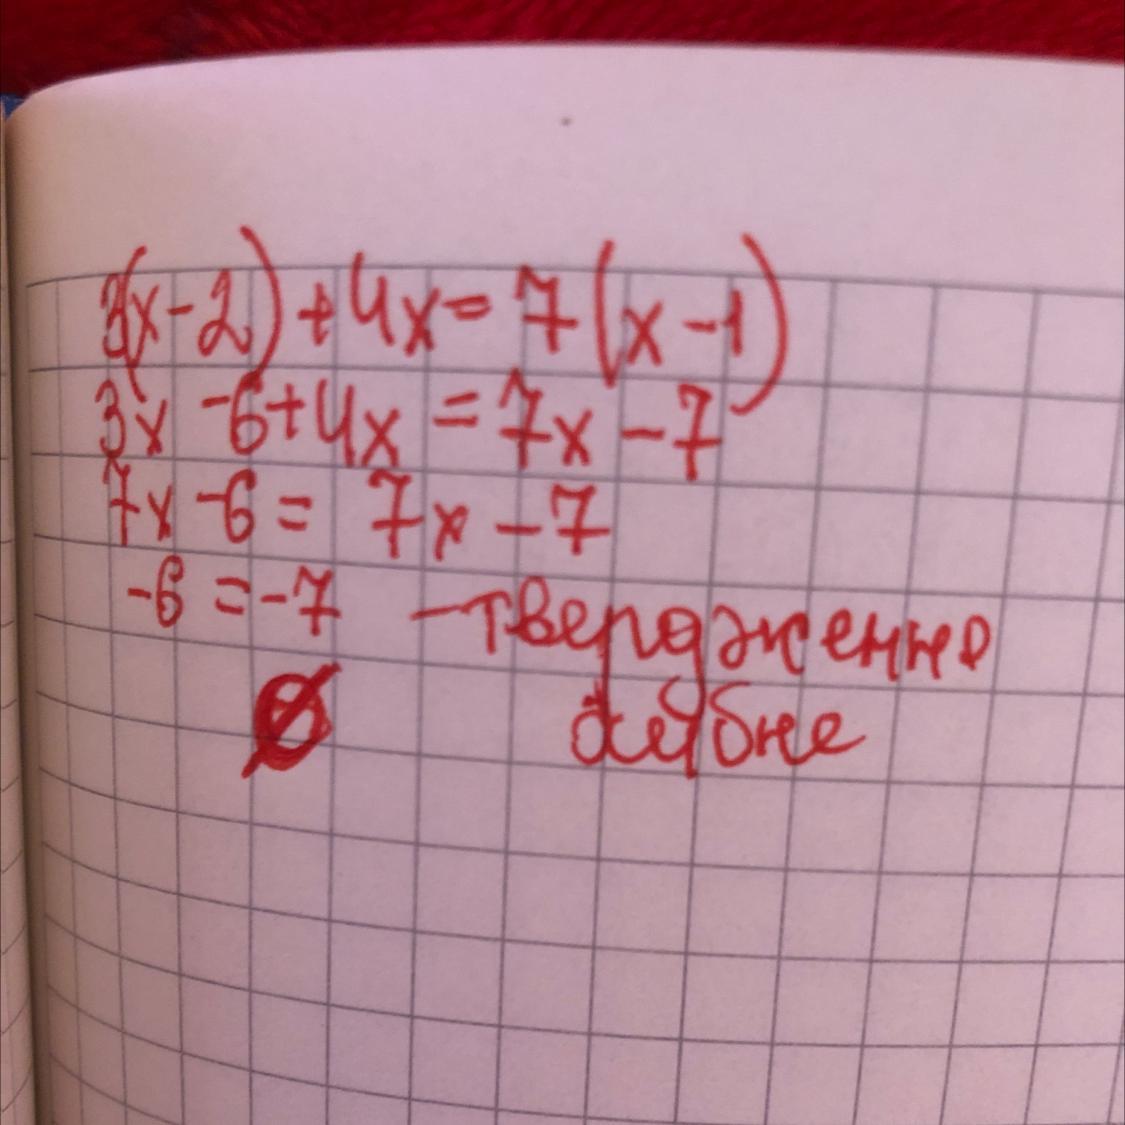 3(x-2)+4x=7(x-1)
3x-6+4x=7x-7
7x-6=7x-7
-6=-7 -твердження
хибне
∅